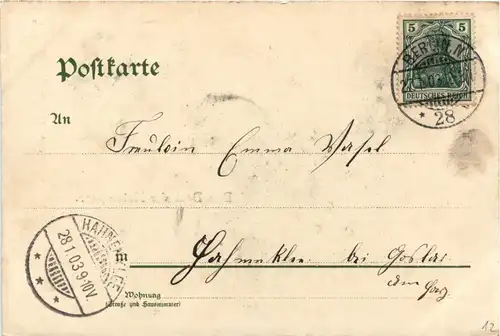 5 5
BERLIN. N.
DEUTSCHES REICH
* 28
Postkarte
An
Fräulein Emma Wasel
HAHNENKLEE
28.1.03.9-10V.
in Hahnenklee bei Goslar
am Harz
Wohnung
(Straße und Hausnummer)
12